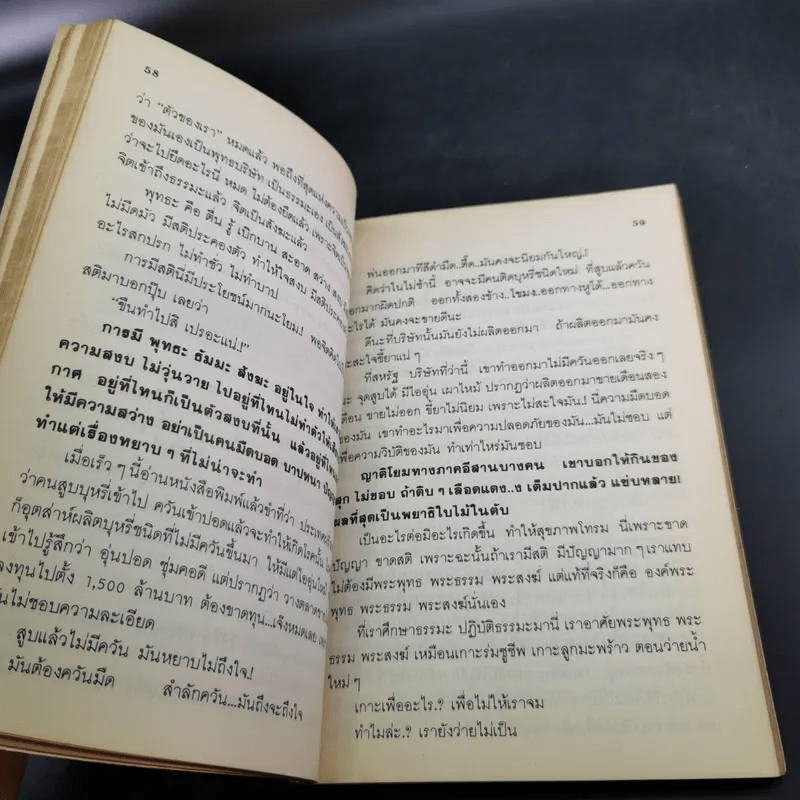 58
ว่า "ตัวของเรา" หมดแล้ว พอถึงที่สุดแห่งความ
ของมันเองเป็นพุทธบริษัท เป็นธรรมะเอง
ว่าจะไปยึดอะไรนี่ หมด ไม่ต้องยึดแล้ว เพราะจิต
จิตเข้าถึงธรรมะแล้ว จิตเป็นสังฆะแล้ว
พุทธะ คือ ตื่น รู้ เบิกบาน สะอาด สว่าง
ไม่มืดมัว มีสติประคองตัว ทำให้ใจสงบ มีสติ
อะไรสกปรก ไม่ทำชั่ว ไม่ทำบาป
การมีสตินี่มีประโยชน์มากนะโยม!
สติมาบอกปุ๊บ เลยว่า
"ขืนทำไปสิ เปรอะแน่.!"
การมี พุทธะ ธัมมะ สังฆะ อยู่ในใจ
ความสงบ ไม่วุ่นวาย ไปอยู่ที่ไหนไม่ทำตัวให้
กาศ อยู่ที่ไหนก็เป็นตัวสงบที่นั้น แล้วอยู่ที่
ให้มีความสว่าง อย่าเป็นคนมืดบอด บาปหนา
ทำแต่เรื่องหยาบๆ ที่ไม่น่าจะทำ
เมื่อเร็วๆ นี้อ่านหนังสือพิมพ์แล้วขำที่ว่า
ว่าคนสูบบุหรี่เข้าไป ควันเข้าปอดแล้วจะทำให้เกิดโรคนั้น
ก็อุตส่าห์ผลิตบุหรี่ชนิดที่ไม่มีควันขึ้นมา ให้มีแต่ไออุ่น
เข้าไปรู้สึกว่า อุ่นปอด ชุ่มคอดี แต่ปรากฏว่า
ลงทุนไปตั้ง 1,500 ล้านบาท ต้องขาดทุน...เจ๊งหมดเลย
ไม่ชอบความละเอียด
สูบแล้วไม่มีควัน มันหยาบไม่ถึงใจ.!
มันต้องควันมืด สำลักควัน...มันถึงจะถึงใจ
59
พ่นออกมาทีสีดำมืด..ตื๊ด..มันคงจะนิยมกันใหญ่.!
คิดว่าในไม่ช้านี้ อาจจะมีคนคิดบุหรี่ชนิดใหม่ ที่สูบแล้วควัน
ออกมากผิดปกติ ออกทั้งสองข้าง..โขมง..ออกทางหูได้...ออกทาง
อะไรได้ มันคงจะขายดีนะ
ดีนะที่บริษัทนั้นมันยังไม่ผลิตออกมา ถ้าผลิตออกมามันคง
จะสะใจขี้ยาแน่ๆ
ที่สหรัฐ บริษัทที่ว่านี้ เขาทำออกมาไม่มีควันออกเลยจริงๆ
นะ จุดสูบได้ มีไออุ่น เผาไหม้ ปรากฏว่าผลิตออกมาขายเดือนสอง
เดือน ขายไม่ออก ขี้ยาไม่นิยม เพราะไม่สะใจมัน.! นี่ความมืดบอด
ของมัน เขาทำอะไรมาเพื่อความปลอดภัยของมัน...มันไม่ชอบ แต่
ความวิบัติของมัน ทำเท่าไหร่มันชอบ
ญาติโยมทางภาคอีสานบางคน เขาบอกให้กินของ
สุก ไม่ชอบ ถ้าดิบๆ เลือดแดง..ง เต็มปากแล้ว แซ่บหลาย!
ผลที่สุดเป็นพยาธิใบไม้ในตับ
เป็นอะไรต่อมิอะไรเกิดขึ้น ทำให้สุขภาพโทรม นี่เพราะขาด
ปัญญา ขาดสติ เพราะฉะนั้นถ้าเรามีสติ มีปัญญามากๆ เราแทบ
ไม่ต้องมีพระพุทธ พระธรรม พระสงฆ์ แต่แท้ที่จริงก็คือ องค์พระ
พุทธ พระธรรม พระสงฆ์นั่นเอง
ที่เราศึกษาธรรมะ ปฏิบัติธรรมะมานี่ เราอาศัยพระพุทธ พระ
ธรรม พระสงฆ์ เหมือนเกาะร่มชูชีพ เกาะลูกมะพร้าว ตอนว่ายน้ำ
ใหม่ๆ
เกาะเพื่ออะไร.? เพื่อไม่ให้เราจม
ทำไมล่ะ.? เรายังว่ายไม่เป็น